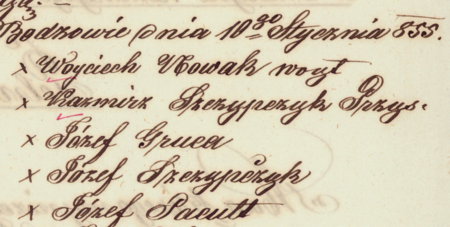 Bodzowie dnia 10go Stycznia 855.
x Woyciech Nowak woyt
x Kazmirz Szczypczyk Przys.
x Józef Gruca
x Józef Szczypczyk
x Józef Pacutt